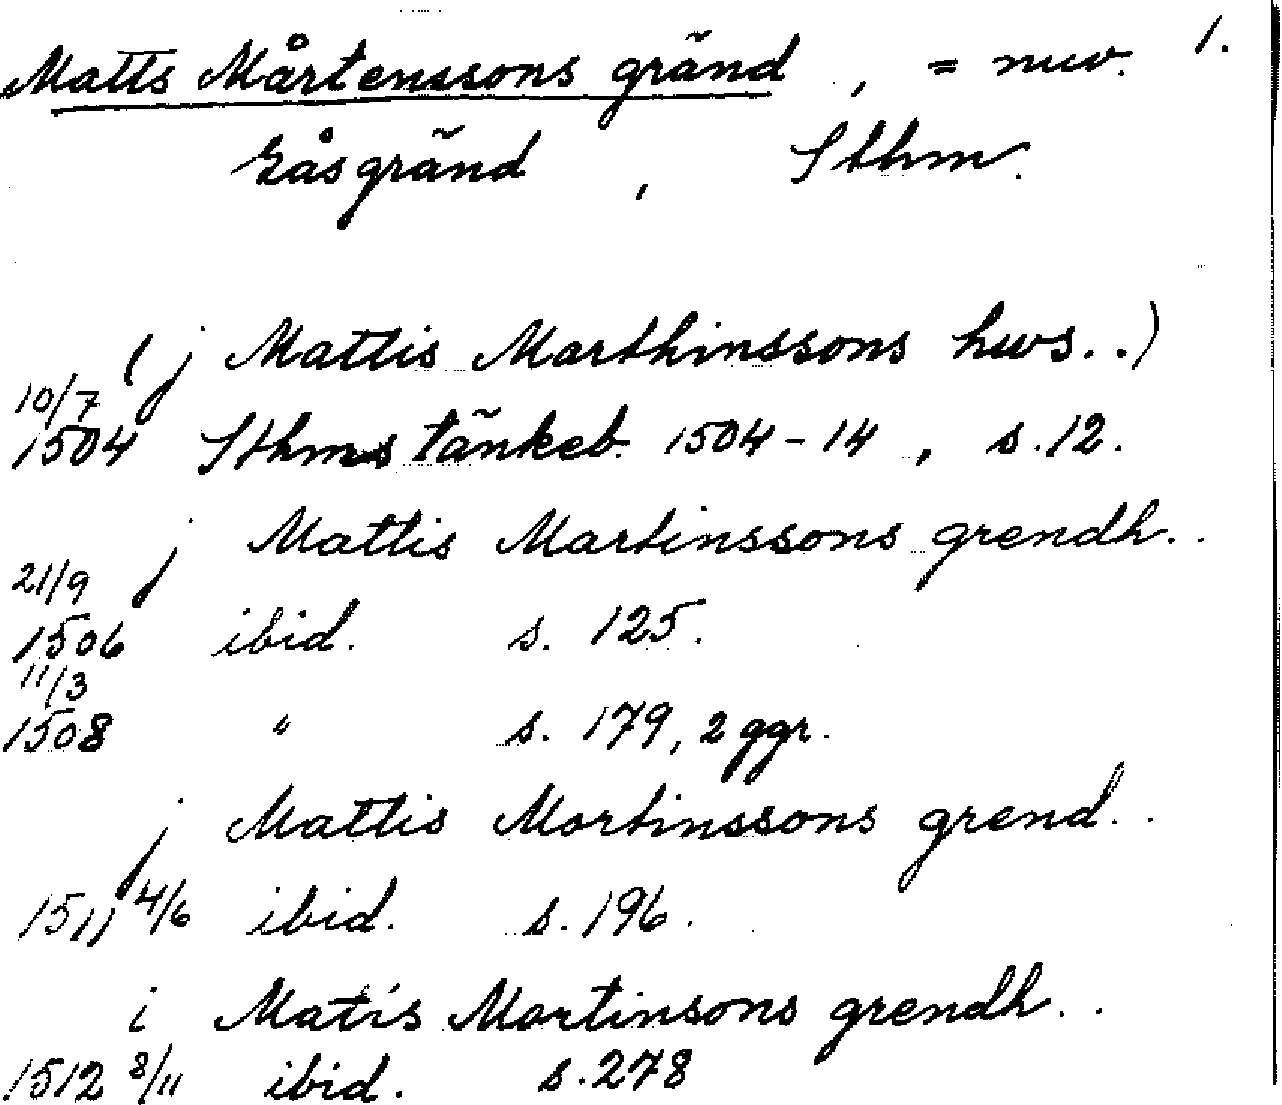 1.
Matts Mårtenssons gränd, = nuv.
Gåsgränd, Sthm.
(j Mattis Marthinssons hws..)
10/7
1504 Sthms tänkeb. 1504-14, s.12.
j Mattis Martinssons grendh..
21/9
1506 ibid. s. 125.
11/3
1508 " s. 179, 2 ggr.
j Mattis Mortinssons grend..
1511 4/6 ibid. s. 196.
i Matis Mortinsons grendh..
1512 8/11 ibid. s. 278